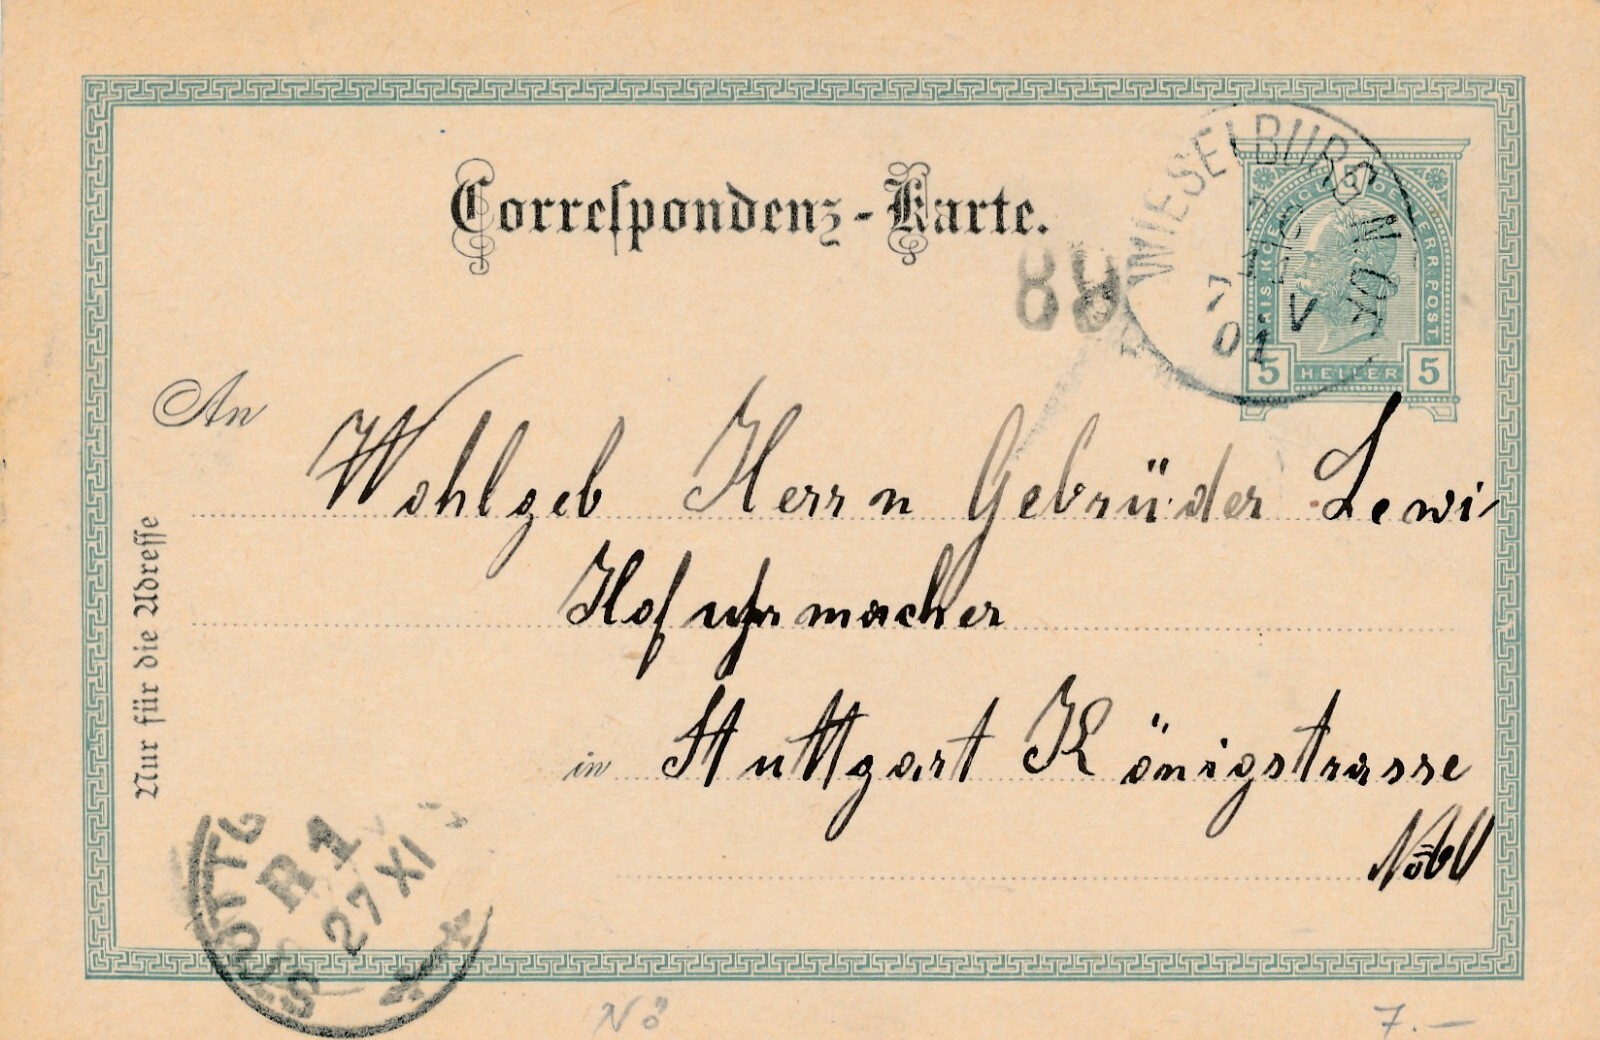 Correspondenz-Karte.
WIESELBURG N.Ö.
7 V 01
KAIS. KOENIGL. OESTERR. POST
5 HELLER 5
89
An Wohlgeb Herrn Gebrüder Lewi
Hofuhrmacher
in Stuttgart Königstrasse
Nur für die Adresse
STUTTG
R 1
27 XI
NÖ
7.–